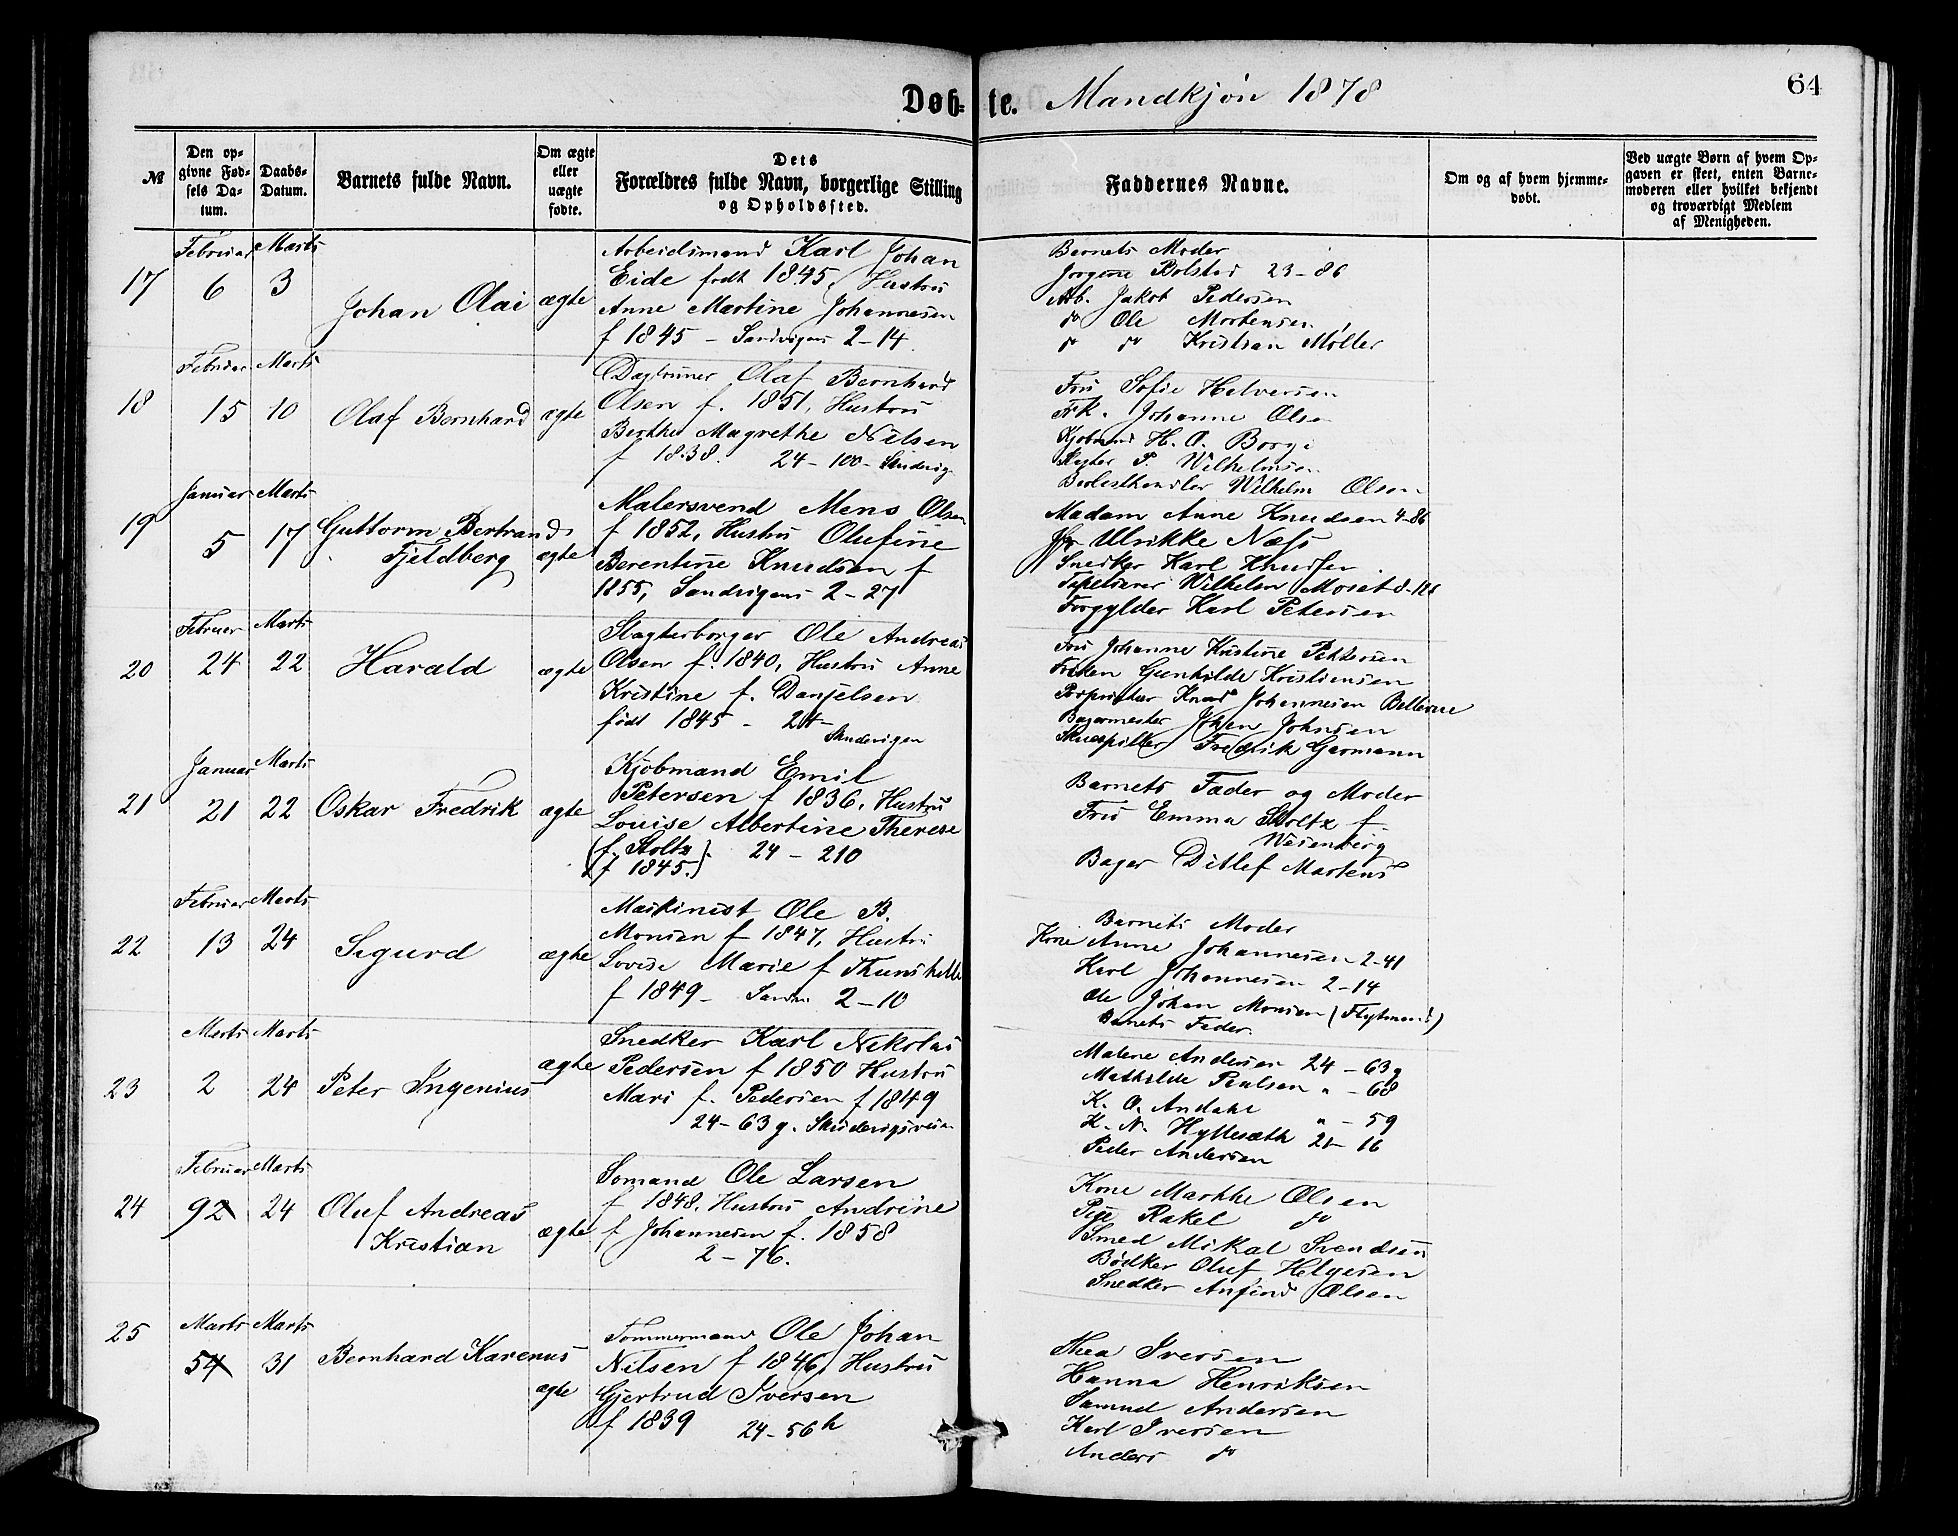 Døb- te. Mandkjøn 1878
64
№
Den op-
givne Fød-
sels Da-
tum.
Daabs-
Datum.
Barnets fulde Navn.
Om ægte
eller
uægte
fødte.
Dets
Forældres fulde Navn, borgerlige Stilling
og Opholdssted.
Faddernes Navne.
Om og af hvem hjemme-
døbt.
Ved uægte Børn af hvem Op-
gaven er skeet, enten Barne-
moderen eller hvilket bekjendt
og troværdigt Medlem
af Menigheden.
17
Februar
6
Marts
3
Johan Olai
ægte
Arbeidsmand Karl Johan
Eide født 1845, Hustru
Anne Martine Johannesen
f 1845 - Sandvigens 2-14
Barnets Moder
Jørgine Rolstad 23-86
Arb. Jakob Pedersen
do Ole Mortensen
do do Kristian Møller
18
Februar
15
Marts
10
Olaf Bernhard
ægte
Olaf Bernhard
Olsen f. 1851, Hustru
Berthe Magrethe Nilsen
f 1838. 24-100- Skudevig
Fru Sofie Halversen
Frk. Johanne Olsen
Kjøbmand H. O. Borge
P. Wilhelmsen
Wilhelm Olsen
19
Januar
5
Marts
17
Guttorm Bertrand
Fjeldberg
ægte
Malersvend Mens Olsen
f 1852, Hustru Olufine
Berentine Knudsen f
1855, Sandvigens 2-27
Madam Anne Knudsen 4-86
Ulrikke Næss
Snedker Karl Knudsen
Tapetserer Wilhelm
Forgylder Karl Petersen
20
Februar
24
Marts
22
Harald
ægte
Slagterborger Ole Andreas
Olsen f. 1840, Hustru Anne
Kristine f. Danjelsen
født 1845 - 24-
Skudevigen
Fru Johanne Kristine Pettersen
Frøken Gunhilde Kristiansen
Proprietær Knud Johannesen Bellevue
Bagermester Johan Johnsen
Skuespiller Fredrik Garmann
21
Januar
21
Marts
22
Oskar Fredrik
ægte
Kjøbmand Emil
Petersen f 1836, Hustru
Louise Albertine Therese
(f. Stoltz
f 1845.) 24-210
Barnets Fader og Moder
Fru Emma Stoltz f.
Wesenberg
Bager Ditlef Martens
22
Februar
13
Marts
24
Sigurd
ægte
Maskinist Ole B.
Monsen f 1847, Hustru
Lovise Marie f
f 1849 - 2-10
Barnets Moder
Kone Anne Johannesen 2-41
Karl Johannesen 2-14
Ole Johan Monsen (Flytmand)
Barnets Fader.
23
Marts
2
Marts
24
Peter Ingenius
ægte
Snedker Karl Nikolai
Pedersen f 1850 Hustru
Mari f. Pedersen f 1849
24-63g. Skudevigsveien
Malene Andersen 24-63g
Mathilde Paulsen " - 68
K. O. Andahl
H. N. Hyllesæth " - 59
Peder Andersen 24-16
24
Februar
92
Marts
24
Oluf Andreas
Kristian
ægte
Sømand Ole Larsen
f 1848, Hustru Andrine
f Johannesen f. 1858
2-76.
Kone Marthe Olsen
Pige Rakel do
Smed Mikal Svendsen
Bødker Oluf Helgesen
Snedker Anfind Olsen
25
Marts
54
Marts
31
Bernhard Karenus
ægte
Tømmermand Ole Johan
Nilsen f 1846, Hustru
Gjertrud Iversen
f 1839 24-56h
Thea Iversen
Hanna Henriksen
Samuel Andersen
Karl Iversen
Anders do